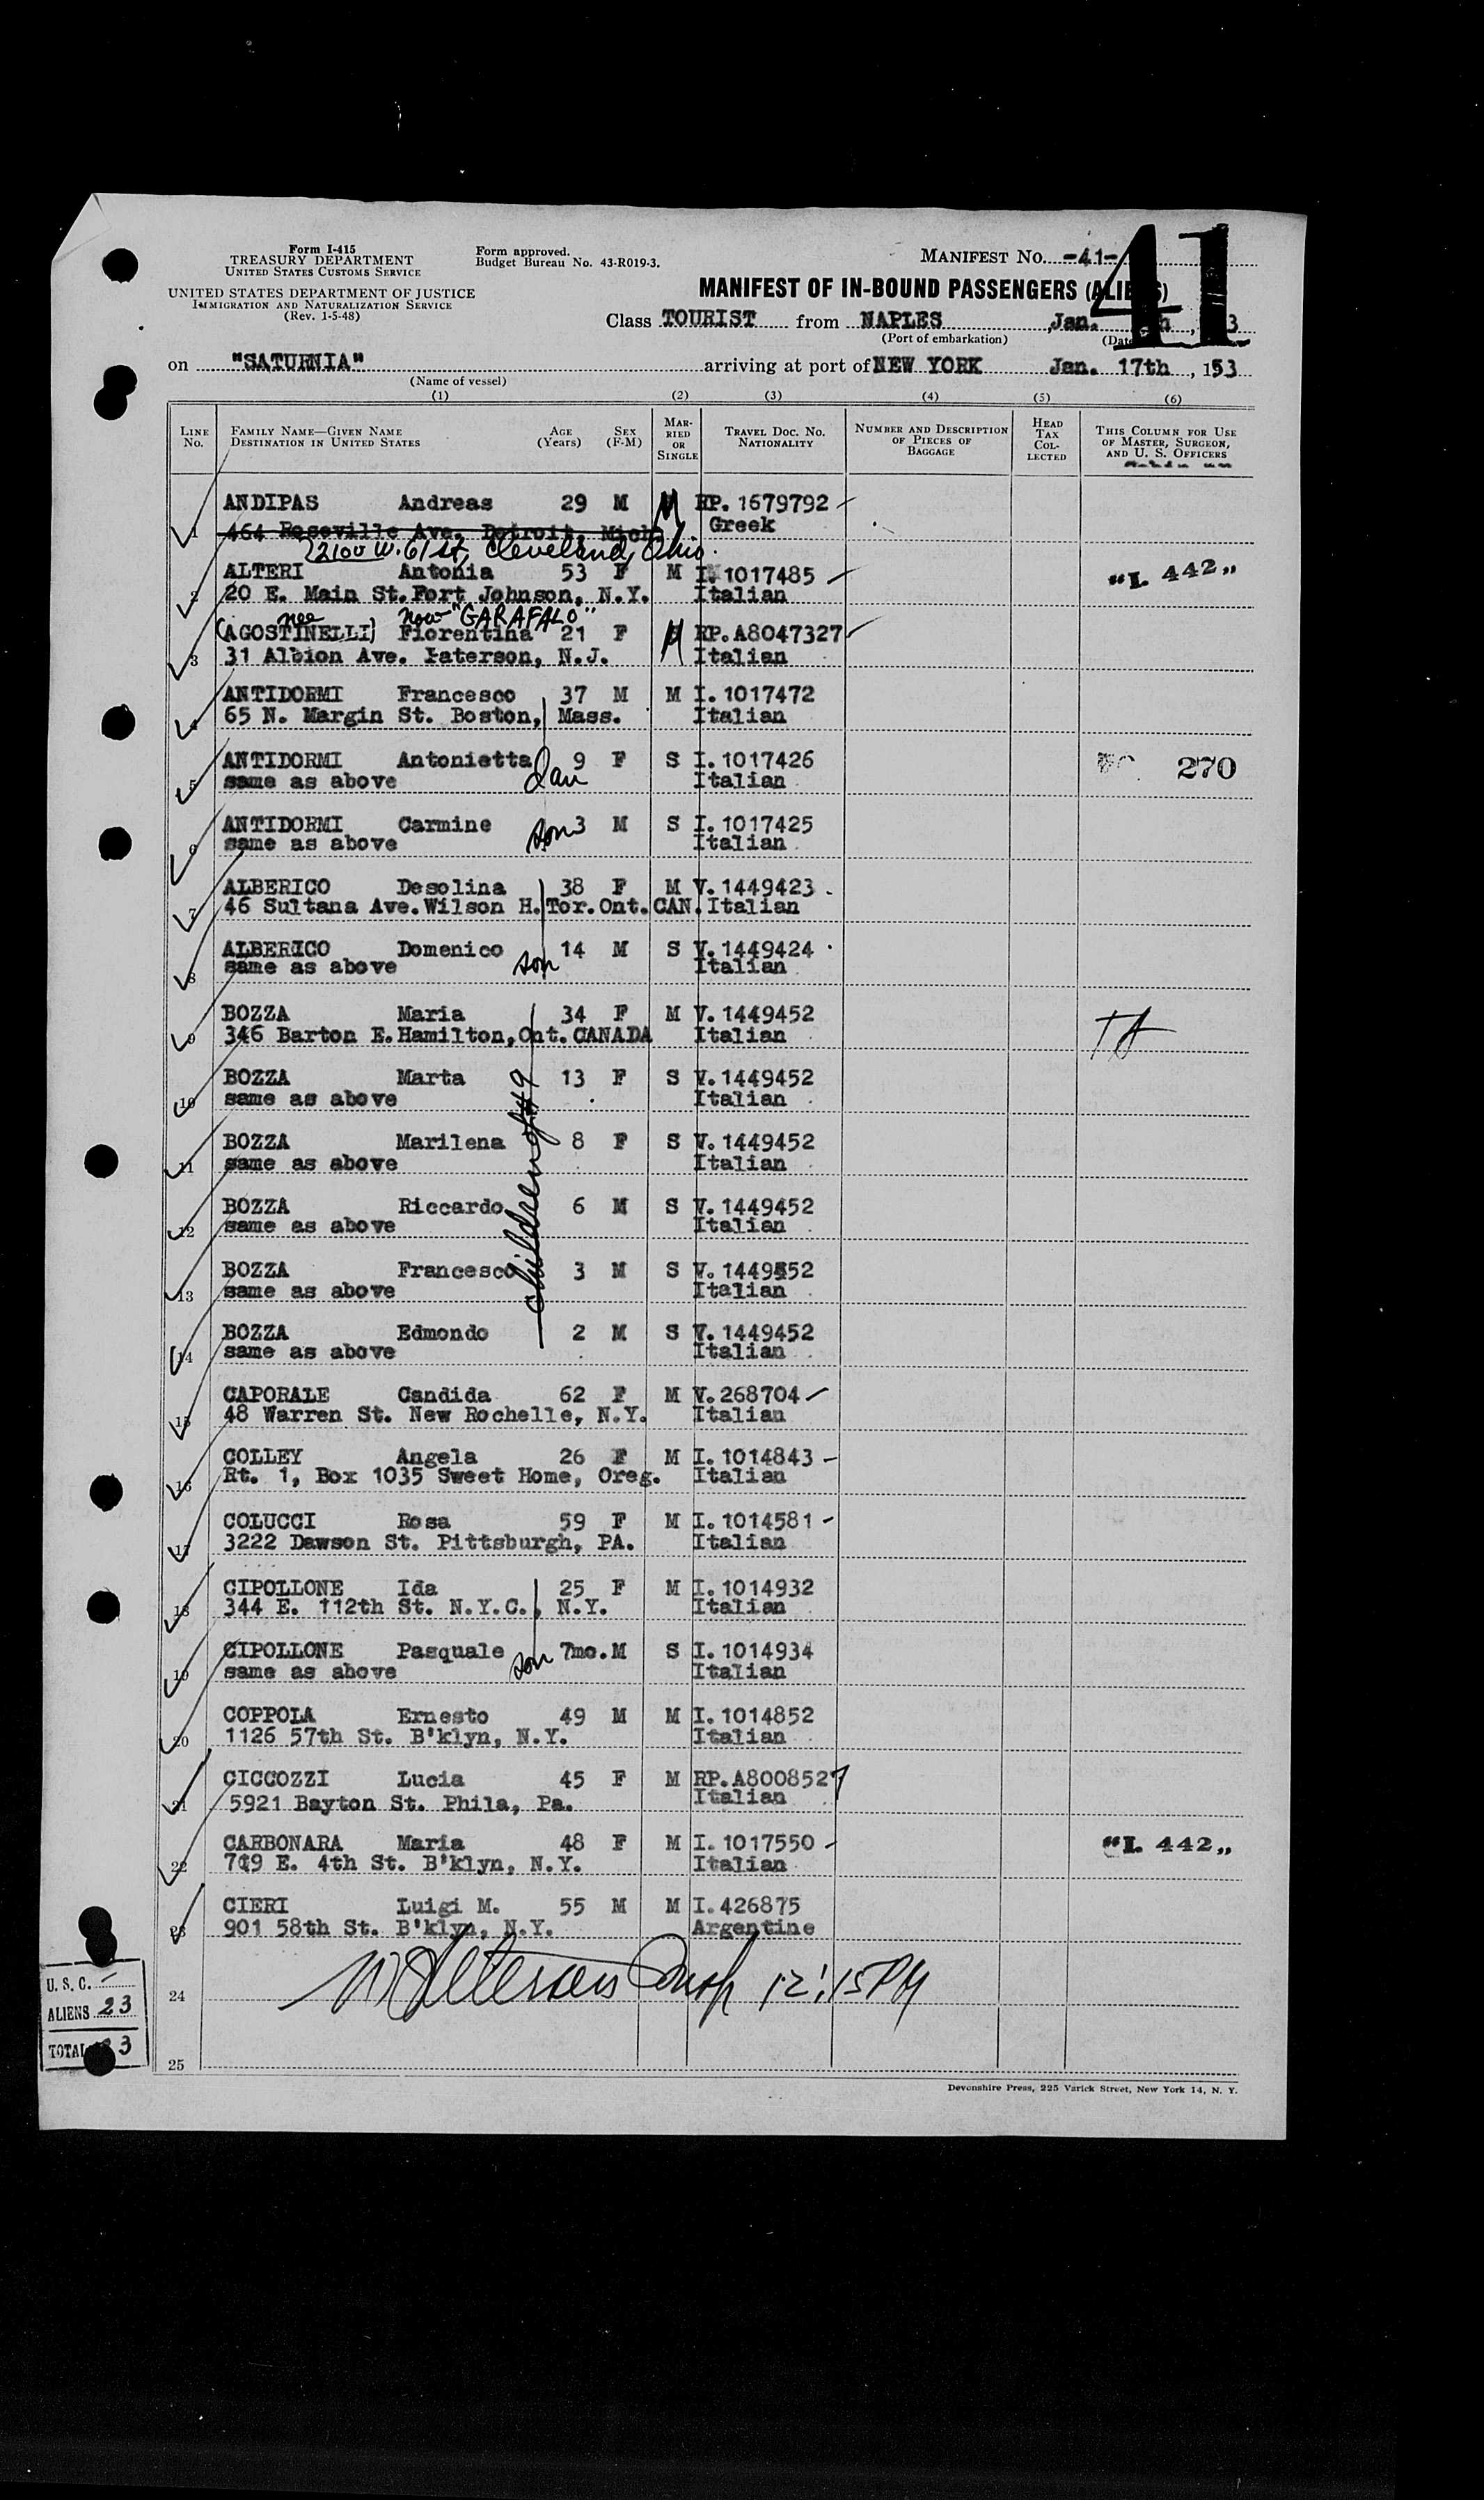 Form I-415
TREASURY DEPARTMENT
UNITED STATES CUSTOMS SERVICE
UNITED STATES DEPARTMENT OF JUSTICE
IMMIGRATION AND NATURALIZATION SERVICE
(Rev. 1-5-48)
Form approved.
Budget Bureau No. 43-R019-3.
MANIFEST NO. -41-
41
MANIFEST OF IN-BOUND PASSENGERS (ALIENS)
Class TOURIST from NAPLES, Jan.
(Port of embarkation) (Date
on "SATURNIA" arriving at port of NEW YORK Jan. 17th, 153
(Name of vessel)
(1) (2) (3) (4) (5) (6)
LINE No. FAMILY NAME—GIVEN NAME DESTINATION IN UNITED STATES AGE (Years) SEX (F-M) MARRIED OR SINGLE TRAVEL DOC. NO. NATIONALITY NUMBER AND DESCRIPTION OF PIECES OF BAGGAGE HEAD TAX COLLECTED THIS COLUMN FOR USE OF MASTER, SURGEON, AND U. S. OFFICERS
1 ANDIPAS Andreas 29 M M RP. 1679792
464 Roseville Ave. Detroit, Mich. Greek
2100 W. 61 St, Cleveland, Ohio.
2 ALTERI Antonia 53 F M I. 1017485 "I. 442"
20 E. Main St. Fort Johnson, N.Y. Italian
nee now "GARAFALO"
3 (AGOSTINELLI) Fiorentina 21 F M RP. A8047327
31 Albion Ave. Paterson, N.J. Italian
4 ANTIDORMI Francesco 37 M M I. 1017472
65 N. Margin St. Boston, Mass. Italian
5 ANTIDORMI Antonietta dau 9 F S I. 1017426 270
same as above Italian
6 ANTIDORMI Carmine son 3 M S I. 1017425
same as above Italian
7 ALBERICO Desolina 38 F M V. 1449423
46 Sultana Ave. Wilson H. Tor. Ont. CAN. Italian
8 ALBERICO Domenico son 14 M S V. 1449424
same as above Italian
9 BOZZA Maria 34 F M V. 1449452
346 Barton E. Hamilton, Ont. CANADA Italian
children of #9
10 BOZZA Marta 13 F S V. 1449452
same as above Italian
11 BOZZA Marilena 8 F S V. 1449452
same as above Italian
12 BOZZA Riccardo 6 M S V. 1449452
same as above Italian
13 BOZZA Francesco 3 M S V. 1449452
same as above Italian
14 BOZZA Edmondo 2 M S V. 1449452
same as above Italian
15 CAPORALE Candida 62 F M V. 268704
48 Warren St. New Rochelle, N.Y. Italian
16 COLLEY Angela 26 F M I. 1014843
Rt. 1, Box 1035 Sweet Home, Oreg. Italian
17 COLUCCI Rosa 59 F M I. 1014581
3222 Dawson St. Pittsburgh, PA. Italian
18 CIPOLLONE Ida 25 F M I. 1014932
344 E. 112th St. N.Y.C., N.Y. Italian
19 CIPOLLONE Pasquale son 7mo. M S I. 1014934
same as above Italian
20 COPPOLA Ernesto 49 M M I. 1014852
1126 57th St. B'klyn, N.Y. Italian
21 CICCOZZI Lucia 45 F M RP. A8008527
5921 Bayton St. Phila, Pa. Italian
22 CARBONARA Maria 48 F M I. 1017550 "I. 442"
719 E. 4th St. B'klyn, N.Y. Italian
23 CIERI Luigi M. 55 M M I. 426875
901 58th St. B'klyn, N.Y. Argentine
24 12:15 PM
25
U. S. C.
ALIENS 23
TOTAL 23
Devonshire Press, 225 Varick Street, New York 14, N. Y.